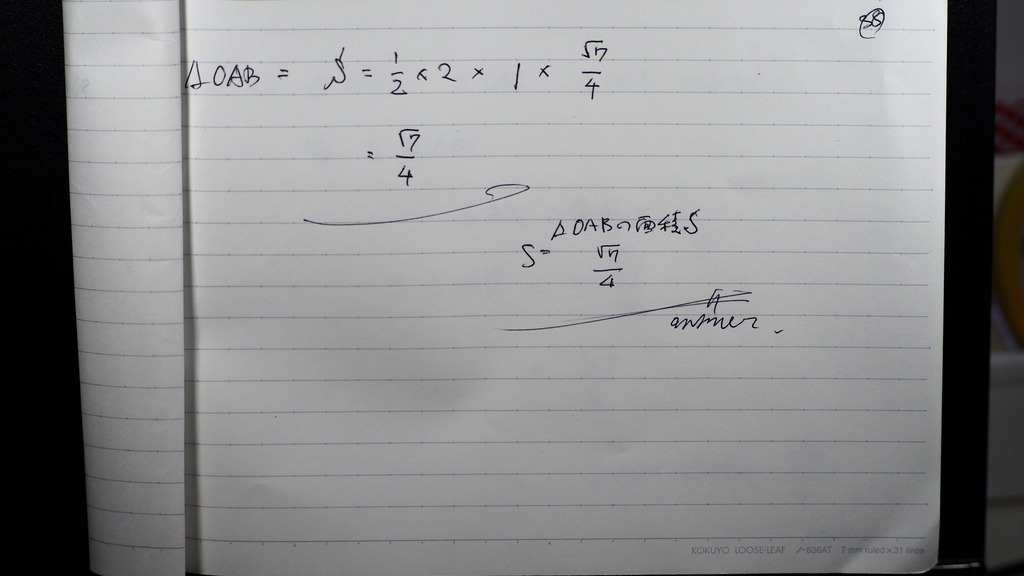 58
△OAB = S = 1/2 × 2 × 1 × √7/4
= √7/4
△OABの面積S
S = √7/4
answer.
KOKUYO LOOSE-LEAF ノ-836AT 7 mm ruled×31 lines